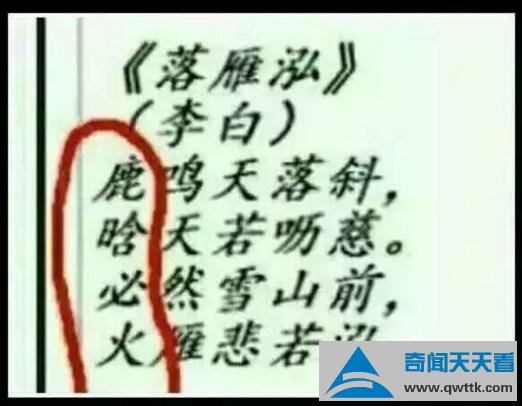 《落雁泓》
(李白)
鹿鸣天落斜，
晗天若呖慈。
必然雪山前，
火雁悲若泓
奇闻天天看
www.qwttk.com